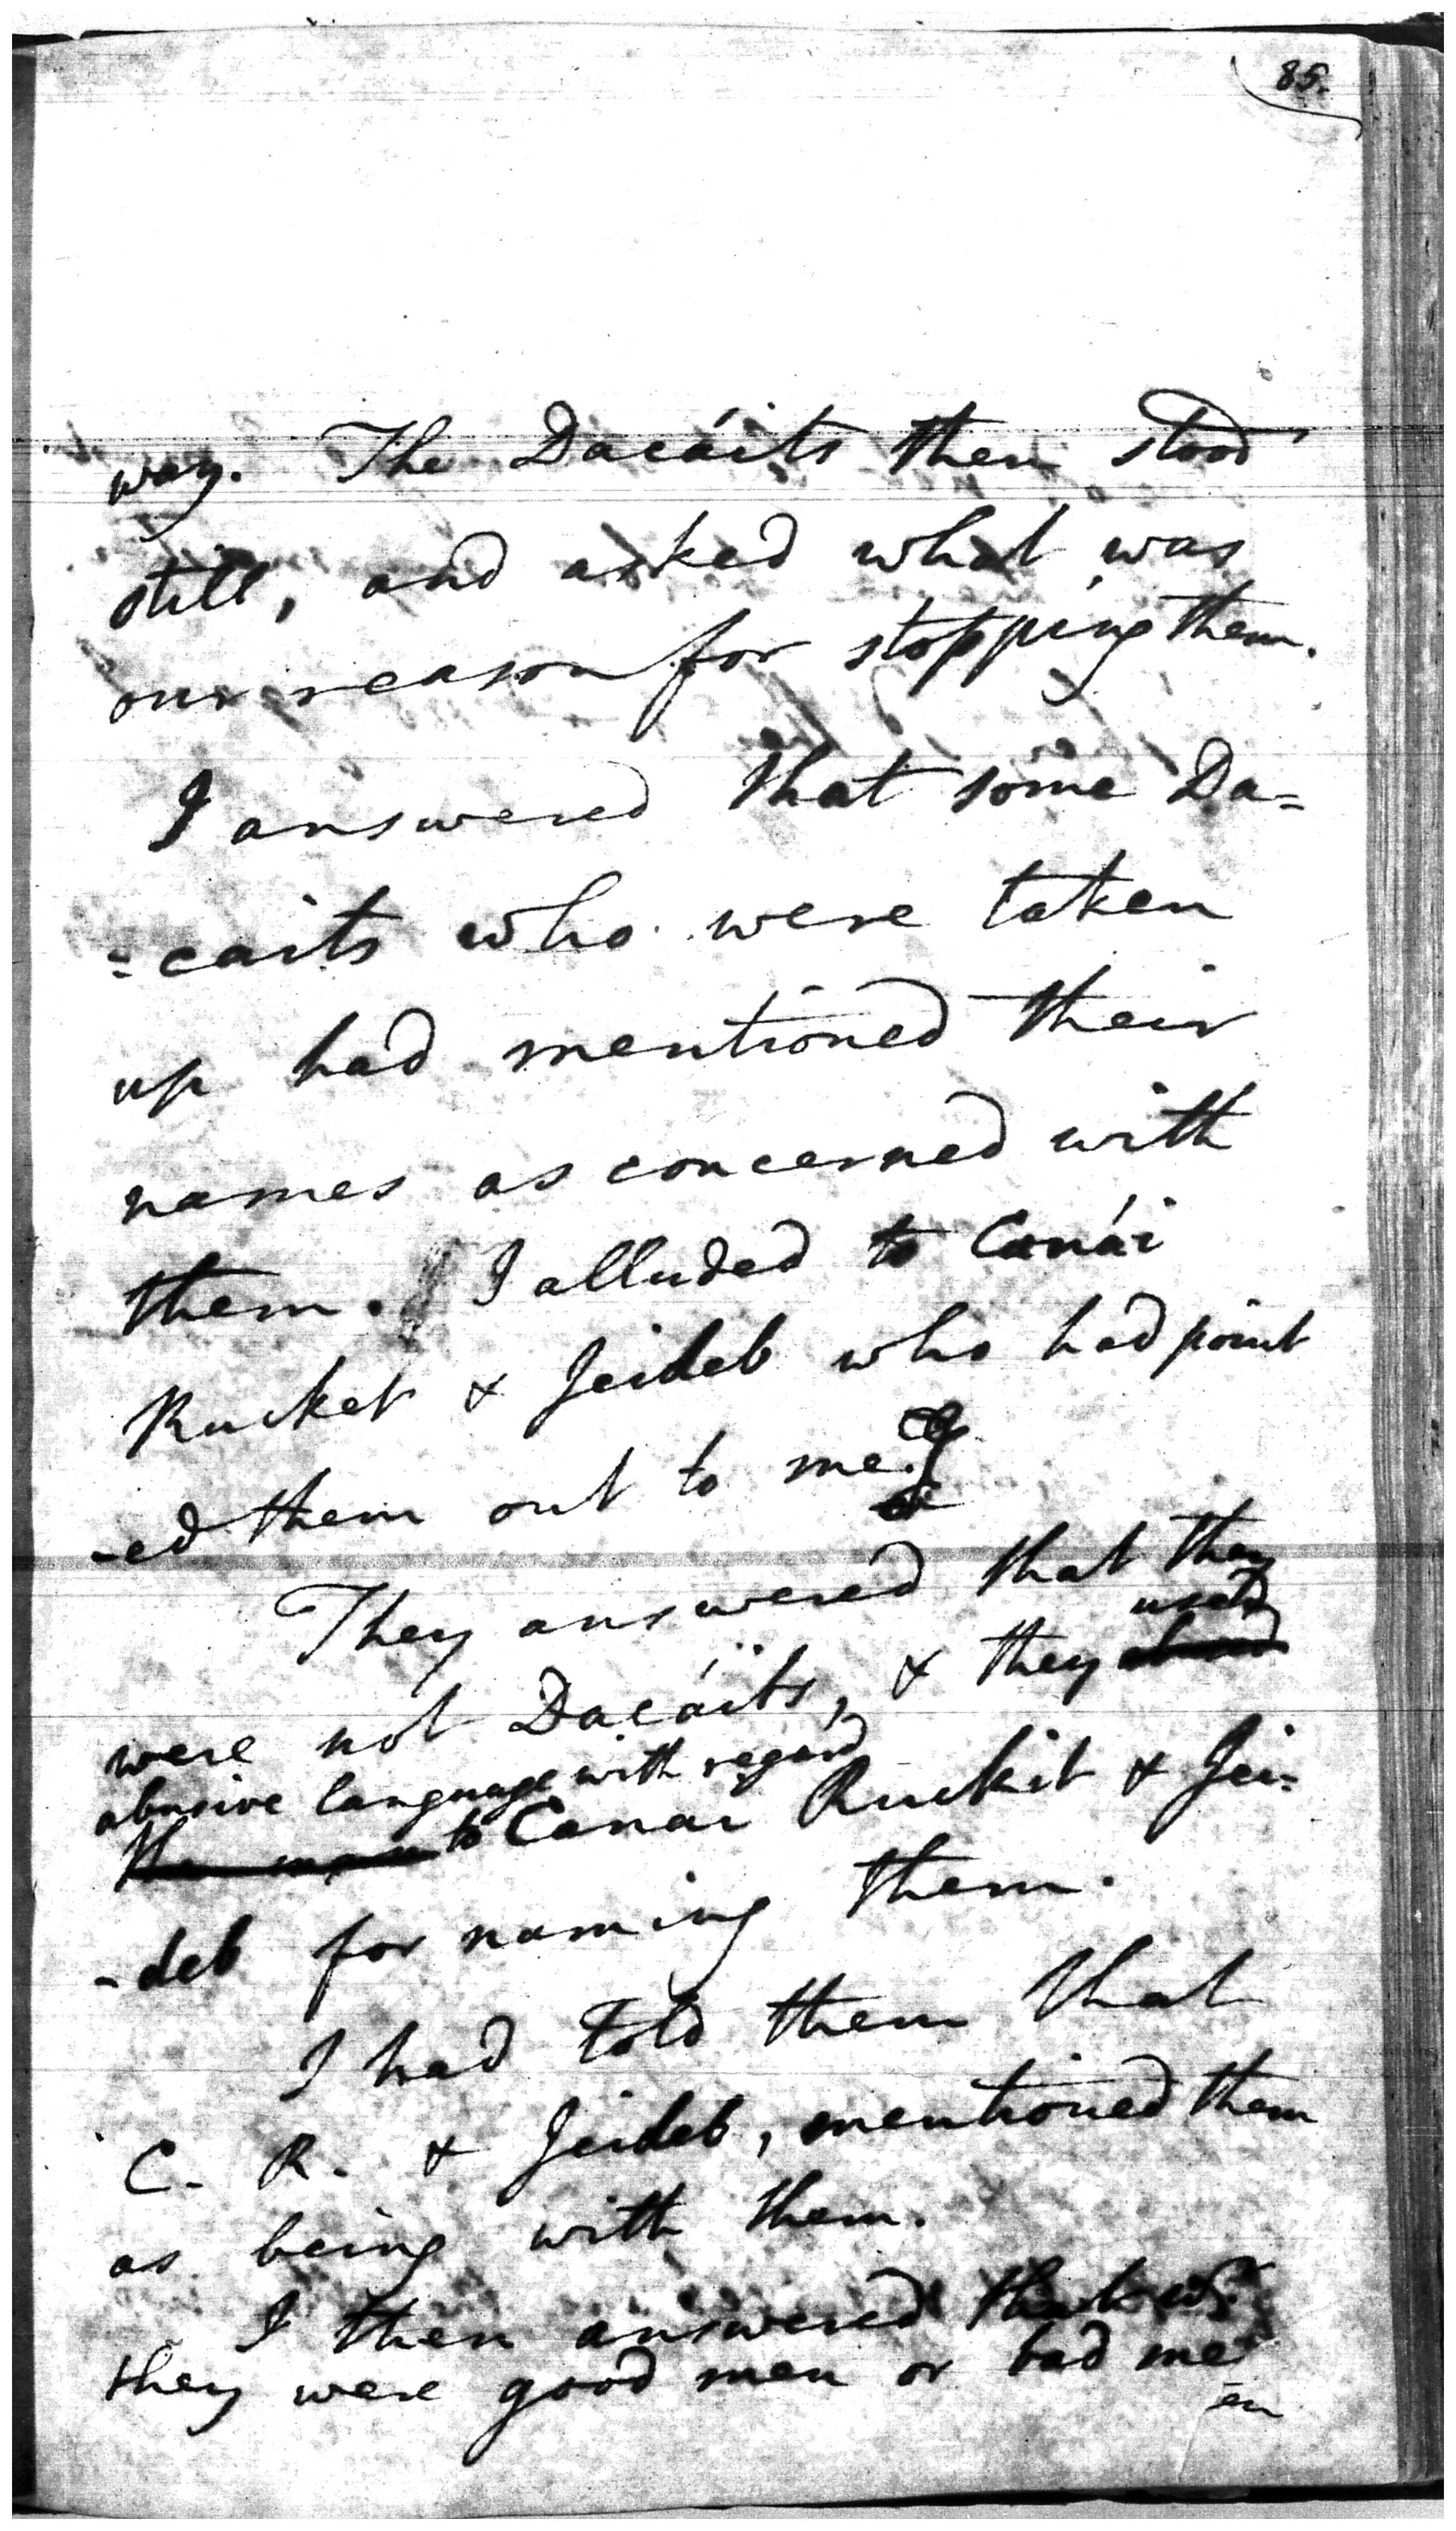 85.
way. The Dacáits then stood
still, and asked what was
our reason for stopping them.
I answered that some Da=
=caits who were taken
up had mentioned their
names as concerned with
them. I alluded to Canái
Rucket & Jeideb who had point
-ed them out to me.
They answered that they
used
were not Dacáits, & they
abusive language with regard
to Canai Ruckit & Jei=
-deb for naming them.
I had told them that
C. R. & Jeideb, mentioned them
as being with them.
I then answered that
they were good men or bad men